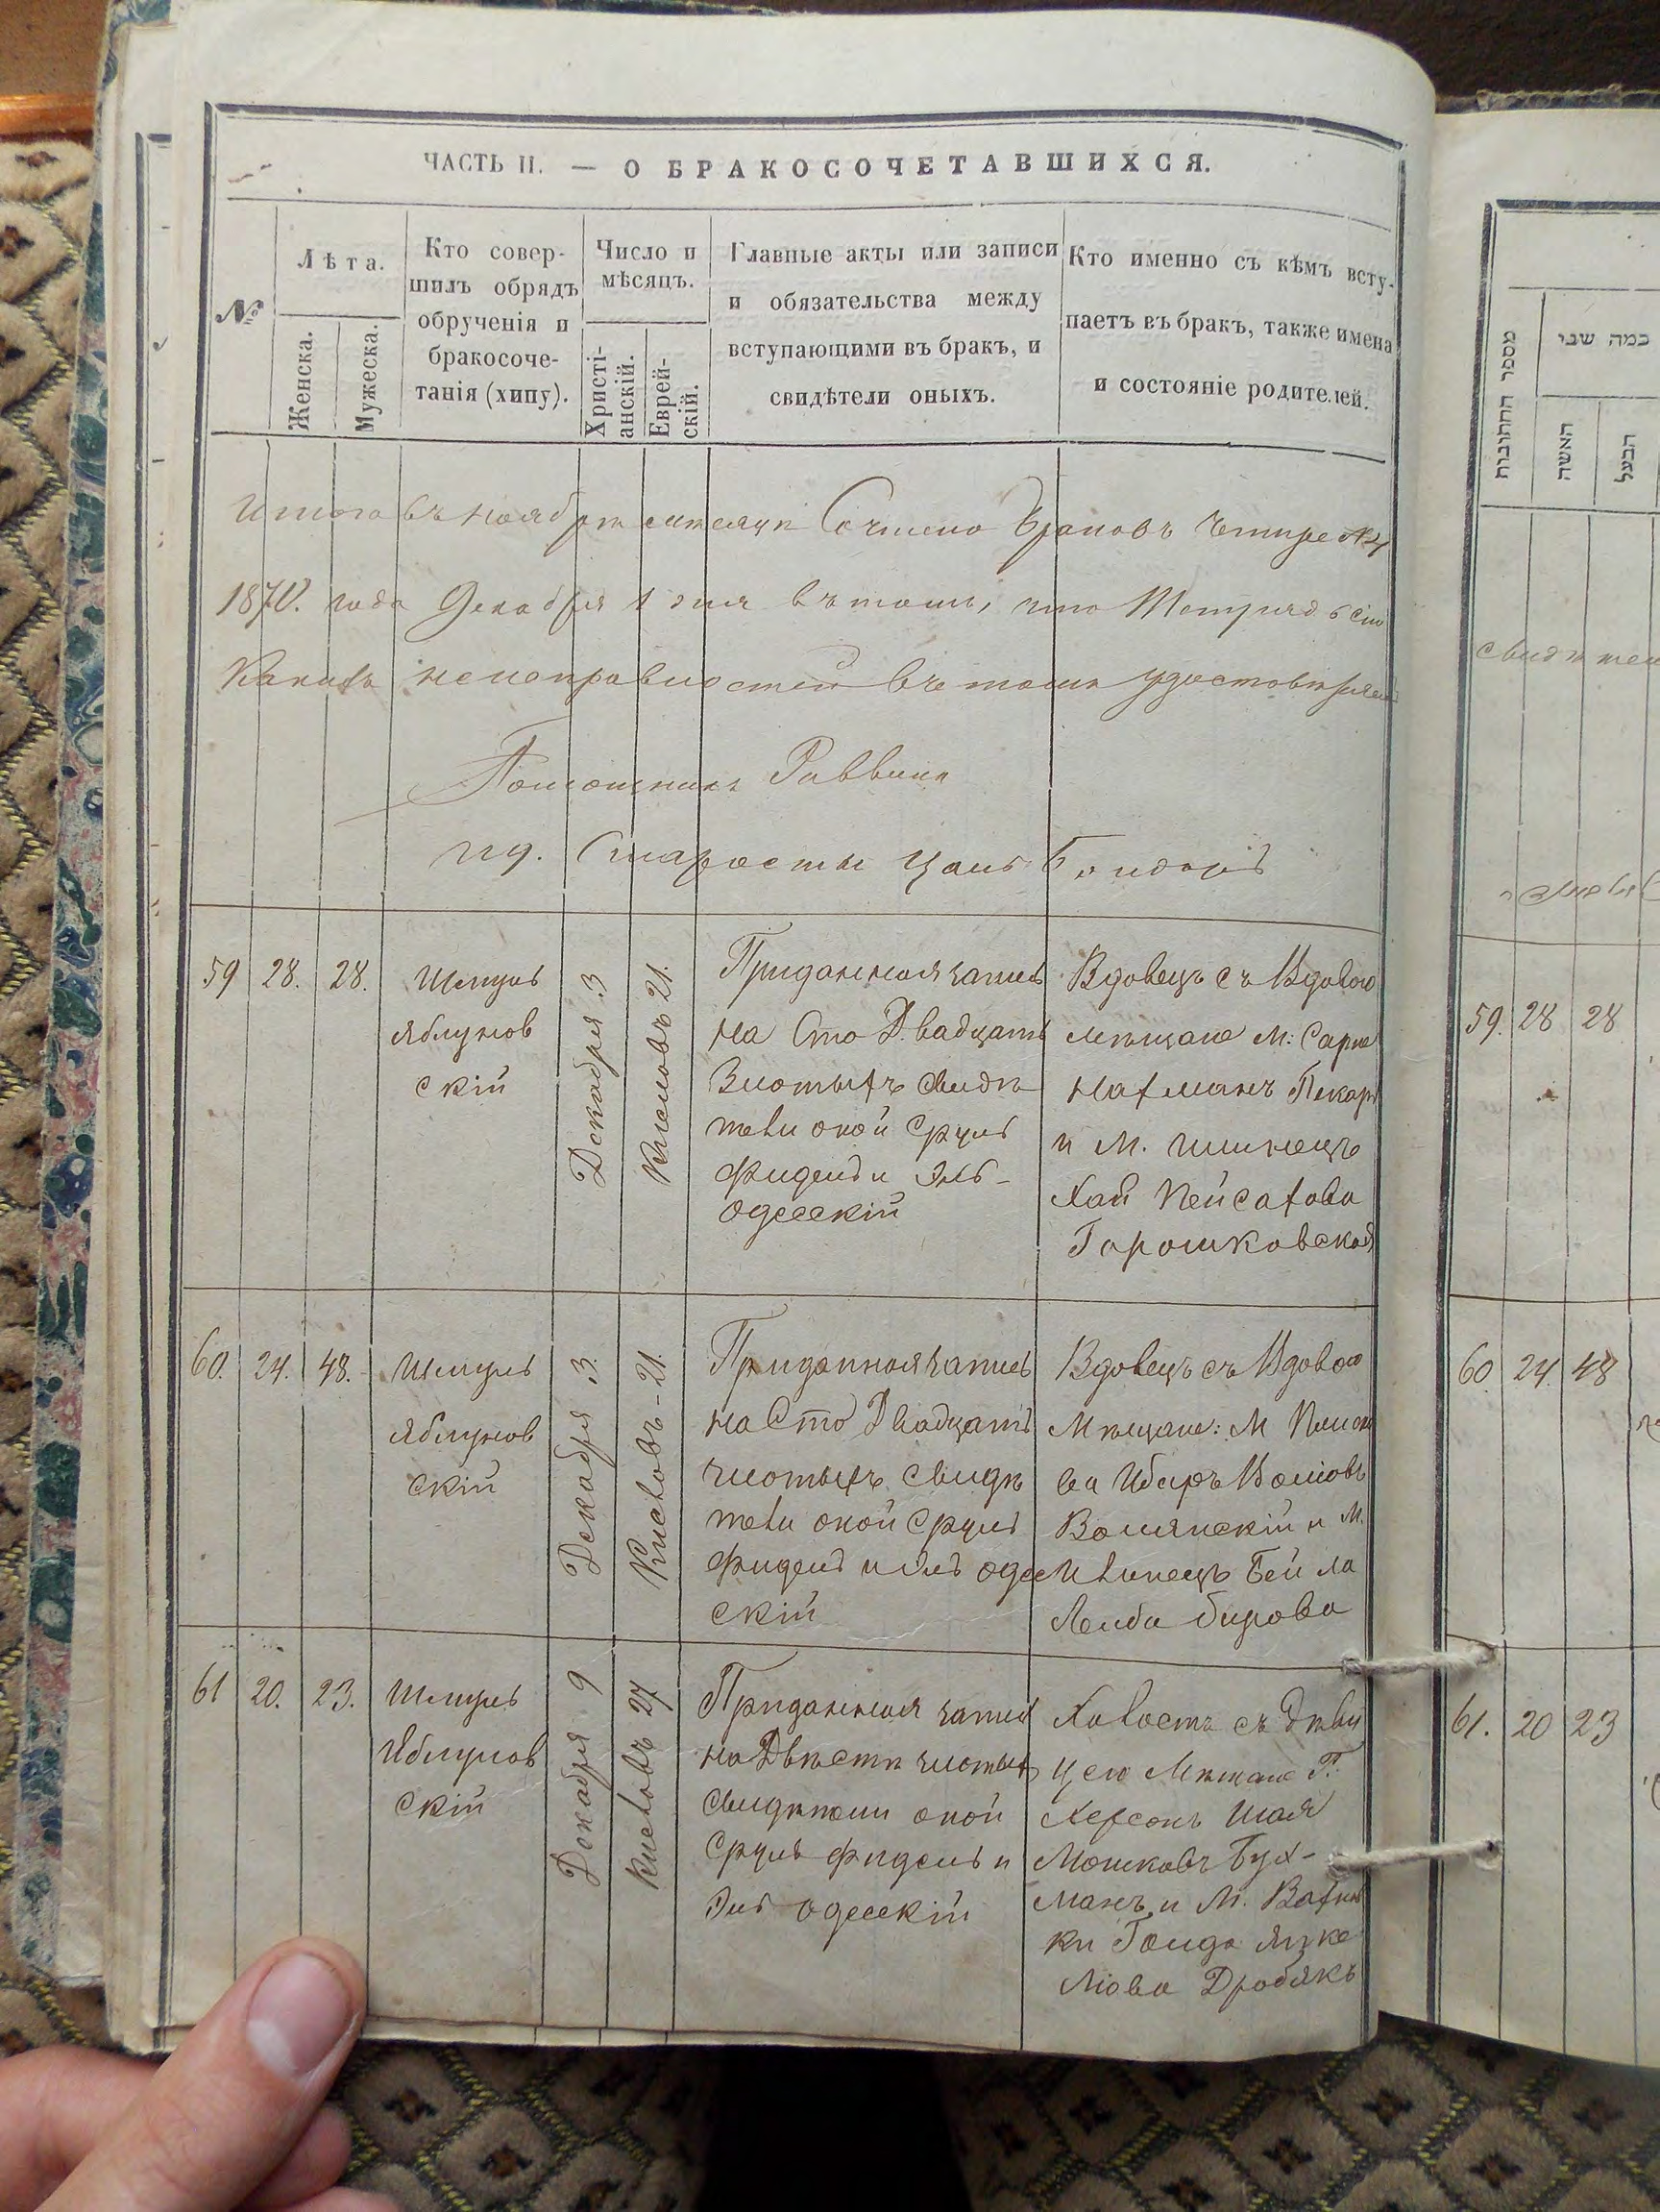 ЧАСТЬ II. — О БРАКОСОЧЕТАВШИХСЯ.
№
Лѣта.
Женска.
Мужеска.
Кто совер-
шилъ обрядъ
обрученія и
бракосоче-
танія (хипу).
Число и
мѣсяцъ.
Христі-
анскій.
Еврей-
скій.
Главные акты или записи
и обязательства между
вступающими въ бракъ, и
свидѣтели оныхъ.
Кто именно съ кѣмъ всту-
паетъ въ бракъ, также имена
и состояніе родителей.
Итого въ ноябрѣ мѣсяцѣ браковъ четыре №4
1870. года Декабря 1 дня въ томъ, что
неисправностей
Помошникъ Раввина
Старосты Бондарь
59
28.
28.
Шмуль
Яблунов
скій
Декабря 3
Кислювъ 21.
Приданная запись
на Сто Двадцать
Злотыхъ свидѣ
тели оной Сруль
Фидель и Эль-
Одесскій
Вдовецъ съ Вдовою
мѣщане М:
Нахманъ Пекарь
и М.
Хая Пейсахова
Горошковская
60.
24.
48.
Шмуль
Яблунов
скій
Декабря 3.
Кислювъ - 21.
Приданная запись
на Сто Двадцать
злотыхъ свидѣ
тели оной Сруль
Фидель и Эль Одес
скій
Вдовецъ съ Вдовою
Мѣщане: М
Волянскій и М.
Бейла
61
20.
23.
Шмуль
Яблунов
скій
Декабря 9
Кислювъ 27
Приданная запись
на Двѣсти злотых
свидѣтели оной
Сруль Фидель и
Эль Одесскій
Холостъ съ Дѣви
цею Мѣщане Г.
Херсонъ Шая
Мошковъ Бух-
манъ и М.
ки Голда
Дробякъ
מספר החתונות
כמה שני
האשה
הבעל
59.
28
28
60.
24.
48
61.
20
23